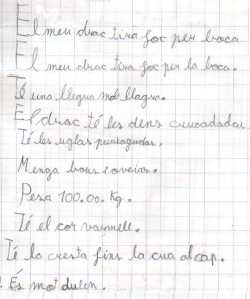 El meu drac tira foc per boca
El meu drac tira foc per la boca.
Té una llegua mol llagra.
El drac té les dens
Té les uglas puntagudas.
Menga bous i oveias.
Pesa 100.00. Kg.
Té el cor varmell.
Té la cresta fins la cua al cap.
És mot dulen.